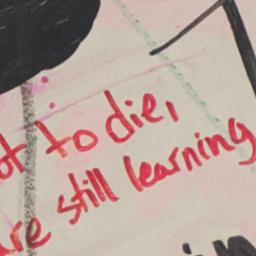 ot to die,
are still learning